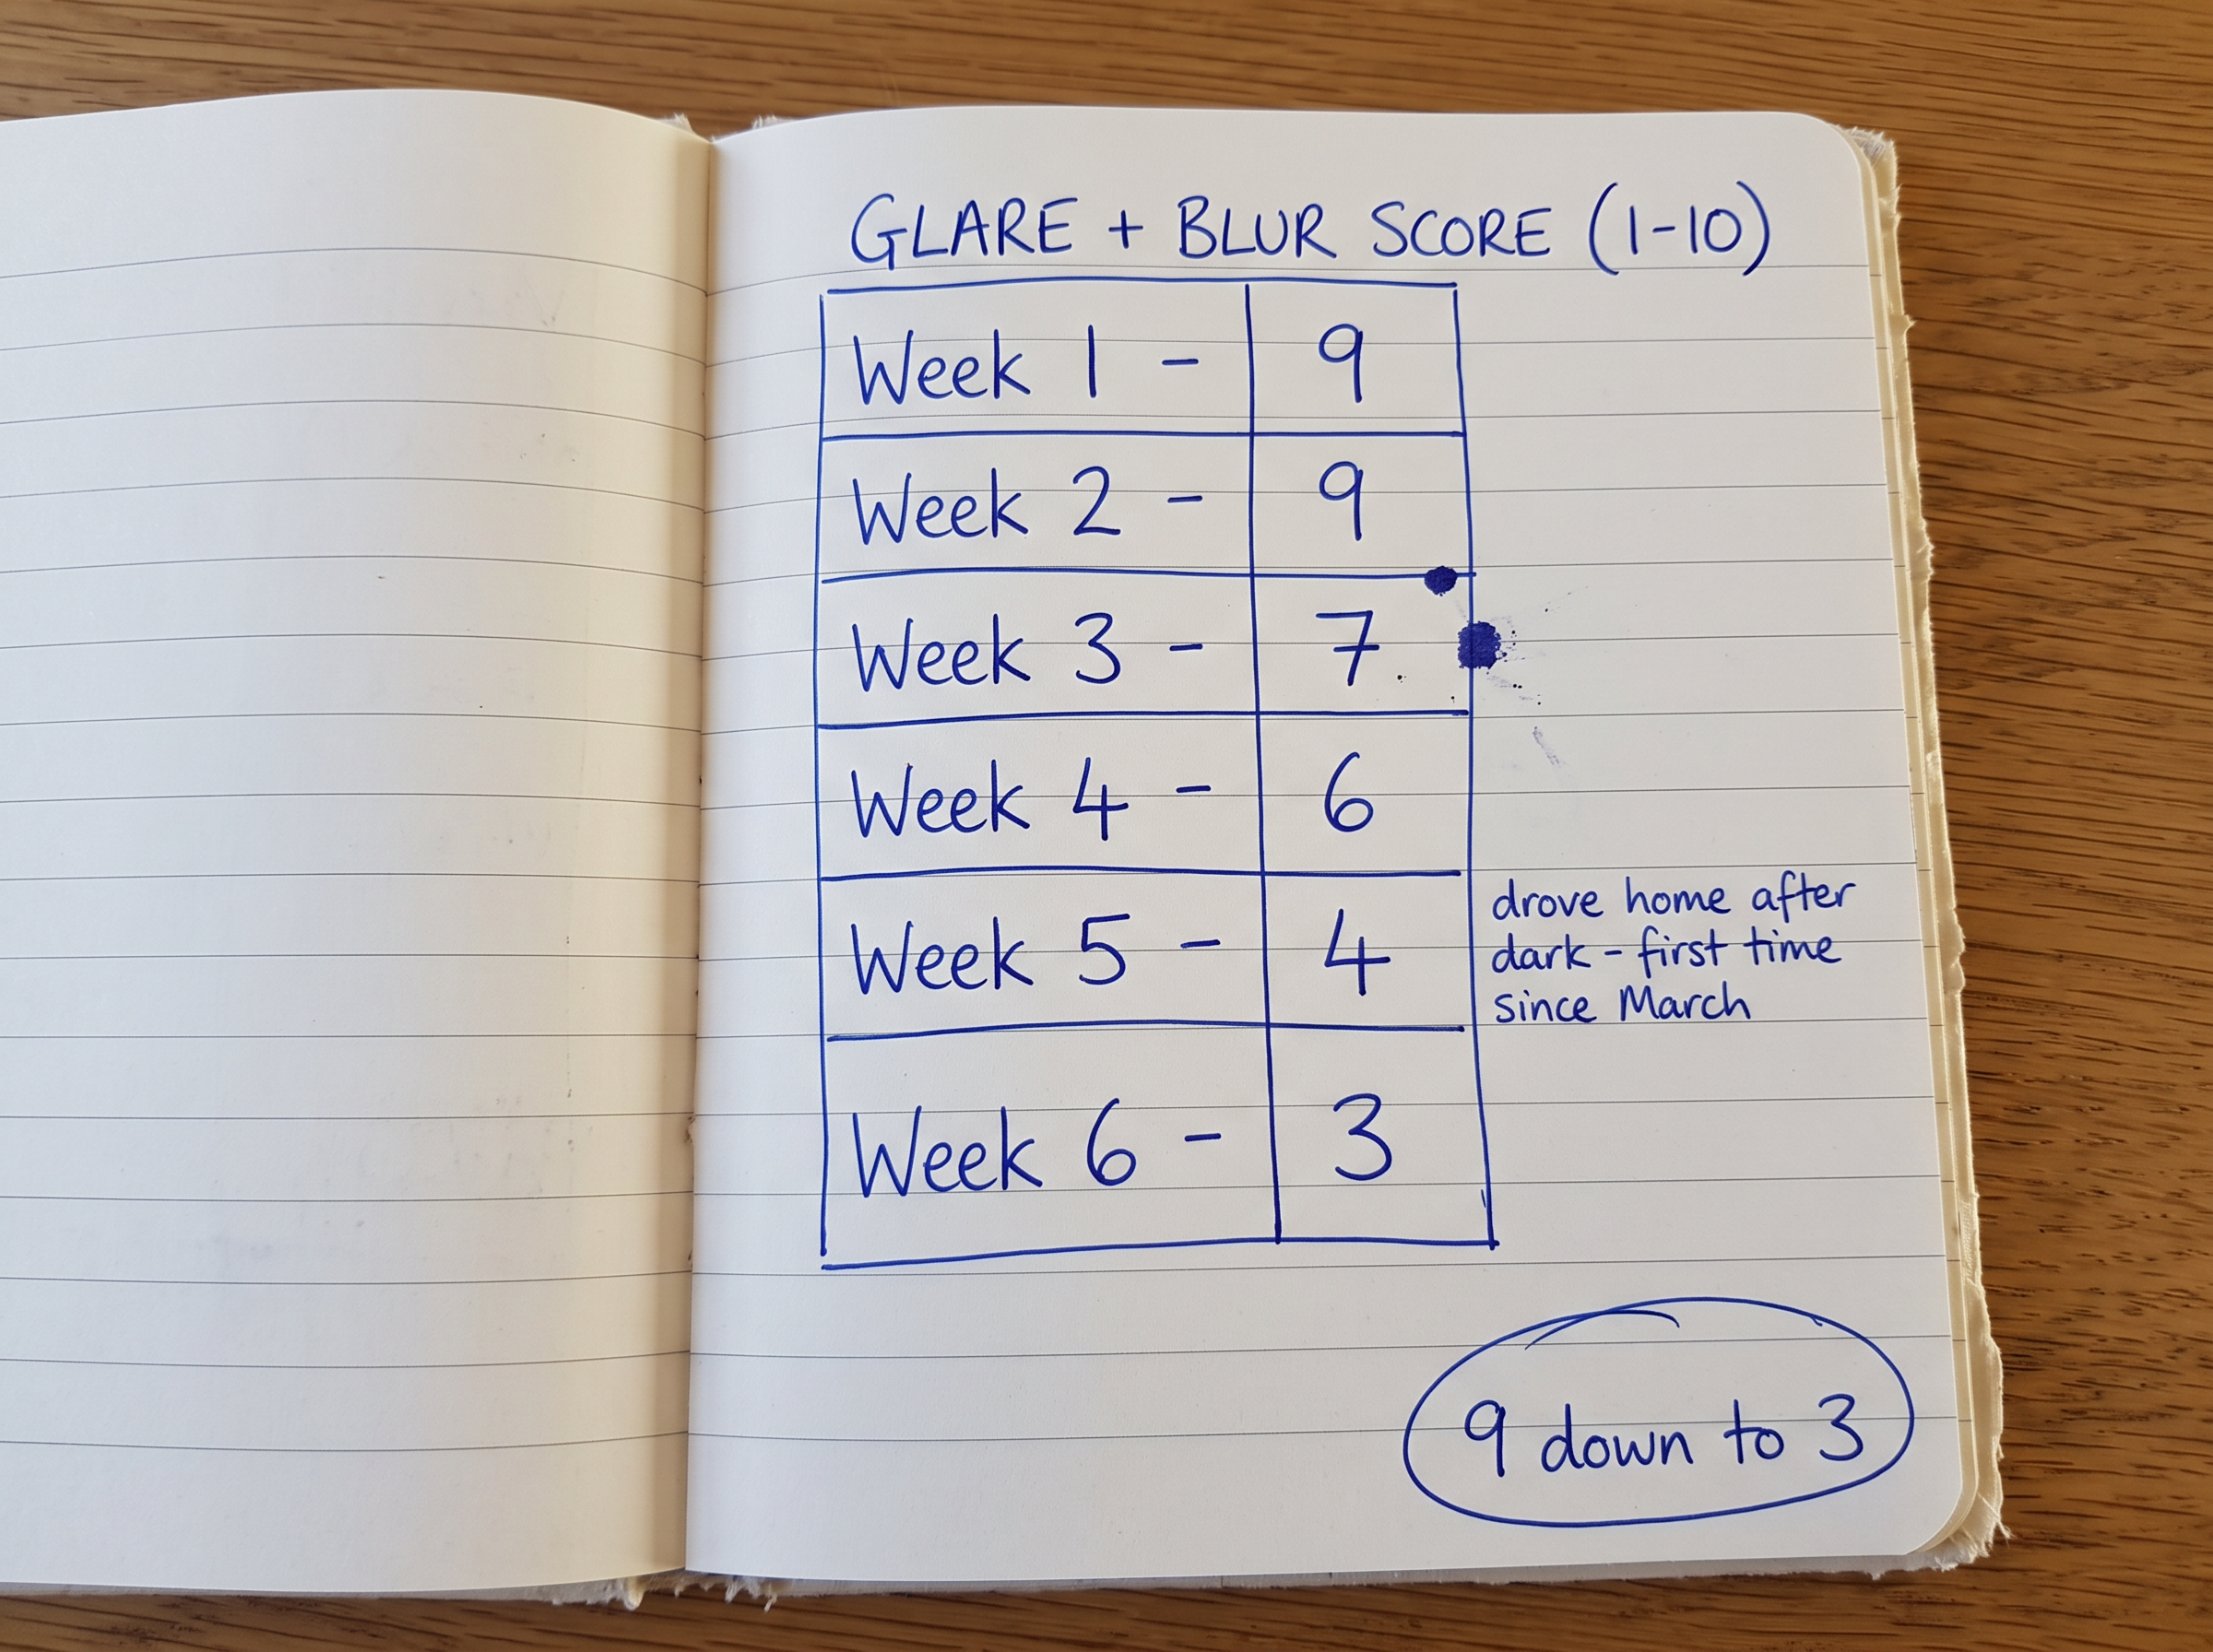 GLARE + BLUR SCORE (1-10)
Week 1 - 9
Week 2 - 9
Week 3 - 7
Week 4 - 6
Week 5 - 4
drove home after
dark - first time
since March
Week 6 - 3
9 down to 3